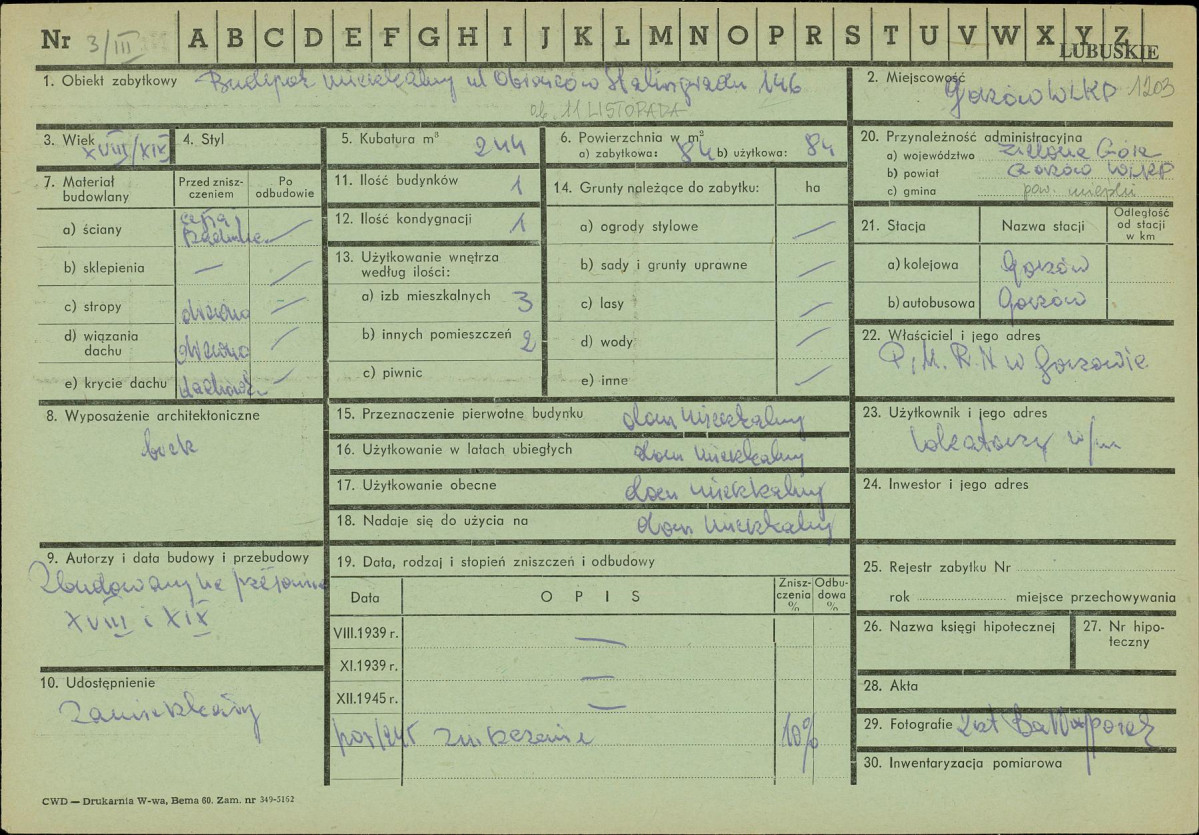 Nr 3/III A B C D E F G H I J K L M N O P R S T U V W X Y Z
LUBUSKIE
1. Obiekt zabytkowy Budynek mieszkalny ul Obrońców Stalingradu 146
ob. 11 LISTOPADA
2. Miejscowość
Gorzów WLKP 1203
3. Wiek XVIII/XIX
4. Styl
5. Kubatura m³ 244
6. Powierzchnia w m²
a) zabytkowa: 84 b) użytkowa: 84
20. Przynależność administracyjna
a) województwo Zielona Góra
b) powiat Gorzów WLKP
c) gmina pow. miejski
7. Materiał budowlany
Przed zniszczeniem
Po odbudowie
a) ściany cegła,
b) sklepienia —
c) stropy drewno
d) wiązania dachu drewno
e) krycie dachu
11. Ilość budynków 1
12. Ilość kondygnacji 1
13. Użytkowanie wnętrza według ilości:
a) izb mieszkalnych 3
b) innych pomieszczeń 2
c) piwnic
14. Grunty należące do zabytku: ha
a) ogrody stylowe —
b) sady i grunty uprawne —
c) lasy —
d) wody —
e) inne —
21. Stacja
Nazwa stacji
Odległość od stacji w km
a) kolejowa Gorzów
b) autobusowa Gorzów
22. Właściciel i jego adres
P.M.R.N w Gorzowie
8. Wyposażenie architektoniczne
brak
15. Przeznaczenie pierwotne budynku dom mieszkalny
16. Użytkowanie w latach ubiegłych dom mieszkalny
17. Użytkowanie obecne dom mieszkalny
18. Nadaje się do użycia na dom mieszkalny
23. Użytkownik i jego adres
lokatorzy w/m
24. Inwestor i jego adres
9. Autorzy i data budowy i przebudowy
Zbudowany na przełomie
XVIII i XIX
10. Udostępnienie
Zamieszkały
19. Data, rodzaj i stopień zniszczeń i odbudowy
Data
OPIS
Zniszczenia %
Odbudowa %
VIII.1939 r. —
XI.1939 r. —
XII.1945 r. —
zniszczenie 10%
25. Rejestr zabytku Nr
rok miejsce przechowywania
26. Nazwa księgi hipotecznej
27. Nr hipoteczny
28. Akta
29. Fotografie
30. Inwentaryzacja pomiarowa
CWD — Drukarnia W-wa, Bema 60. Zam. nr 349-5162